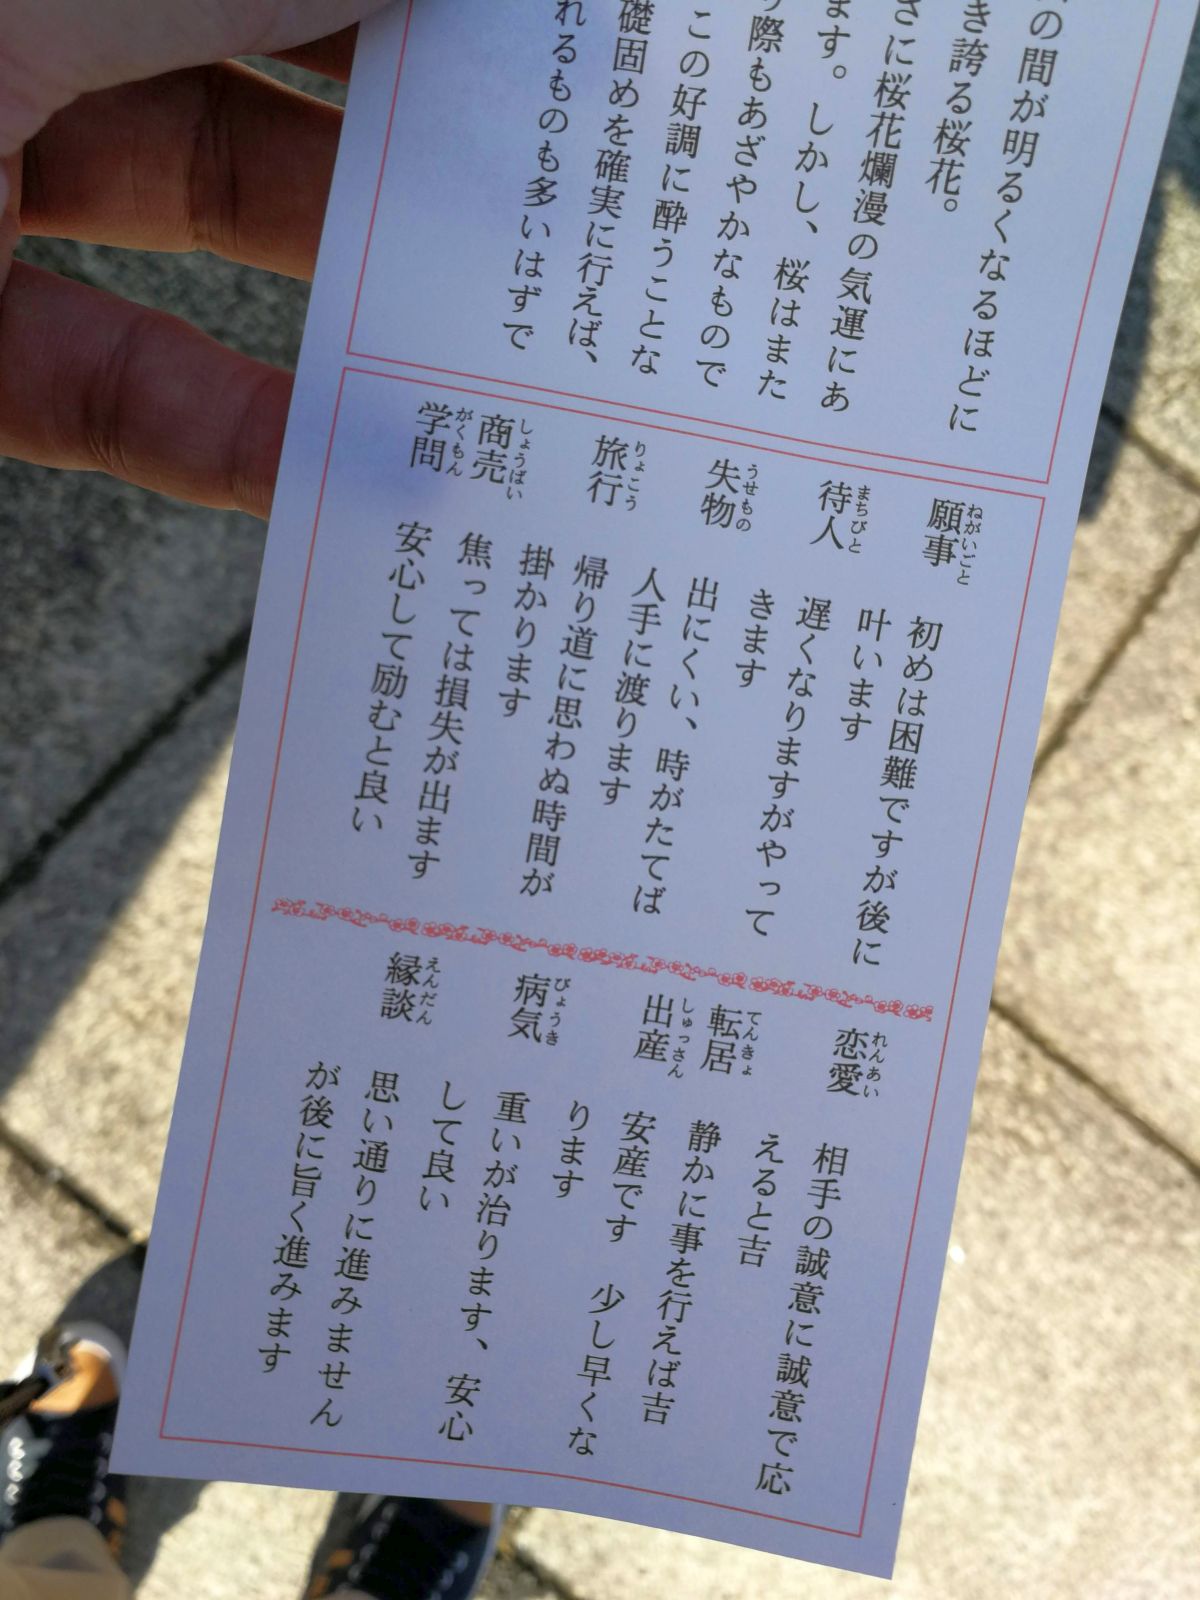 の間が明るくなるほどに
き誇る桜花。
さに桜花爛漫の気運にあ
ます。しかし、桜はまた
際もあざやかなもので
この好調に酔うことな
礎固めを確実に行えば、
れるものも多いはずで
願事 ねがいごと
初めは困難ですが後に
叶います
待人 まちびと
遅くなりますがやって
きます
失物 うせもの
出にくい、時がたてば
人手に渡ります
旅行 りょこう
帰り道に思わぬ時間が
掛かります
商売 しょうばい
焦っては損失が出ます
学問 がくもん
安心して励むと良い
恋愛 れんあい
相手の誠意に誠意で応
えると吉
転居 てんきょ
静かに事を行えば吉
出産 しゅっさん
安産です　少し早くな
ります
病気 びょうき
重いが治ります、安心
して良い
縁談 えんだん
思い通りに進みません
が後に旨く進みます